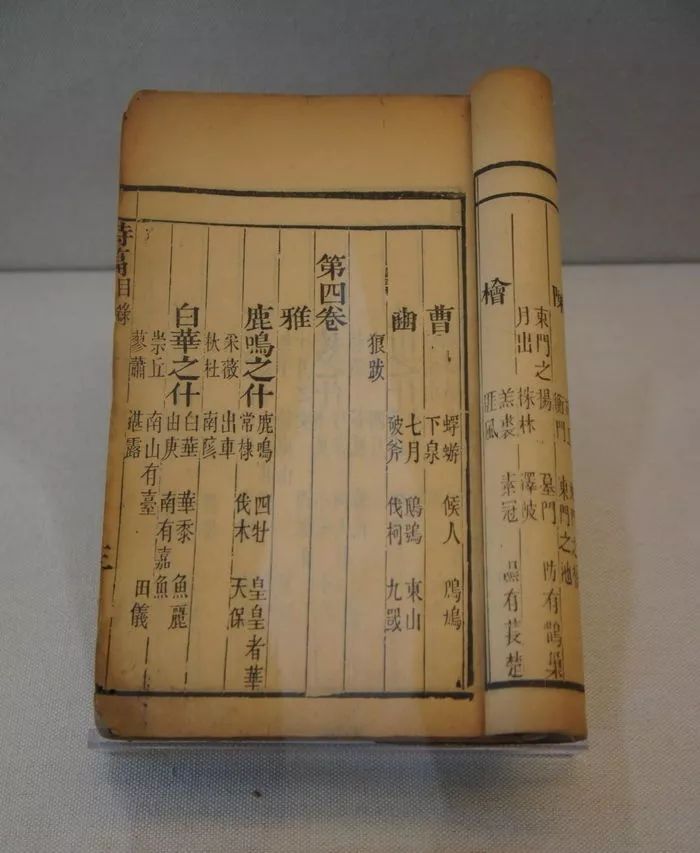 衡門 東門之池
東門之楊 墓門 防有鵲巢
月出 株林 澤陂
檜 羔裘 素冠 隰有萇楚
匪風
曹 蜉蝣 候人 鳲鳩
下泉
豳 七月 鴟鴞 東山
破斧 伐柯 九罭
狼跋
第四卷
雅
鹿鳴之什 鹿鳴 四牡 皇皇者華
常棣 伐木 天保
采薇 出車
杕杜 南陔
白華之什 白華 華黍 魚麗
由庚 南有嘉魚
崇丘 南山有臺
蓼蕭 湛露 由儀
詩篇目錄 三